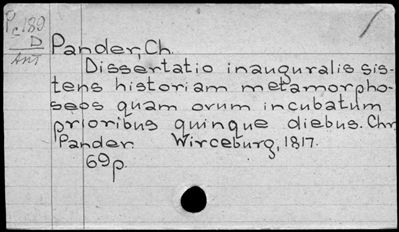 Pc 189
D
Ant
Pander, Ch.
Dissertatio inauguralis sis-
tens historiam metamorpho-
seos quam ovum incubatum
prioribus quinque diebus. Chr.
Pander. Wirceburg, 1817.
69p.